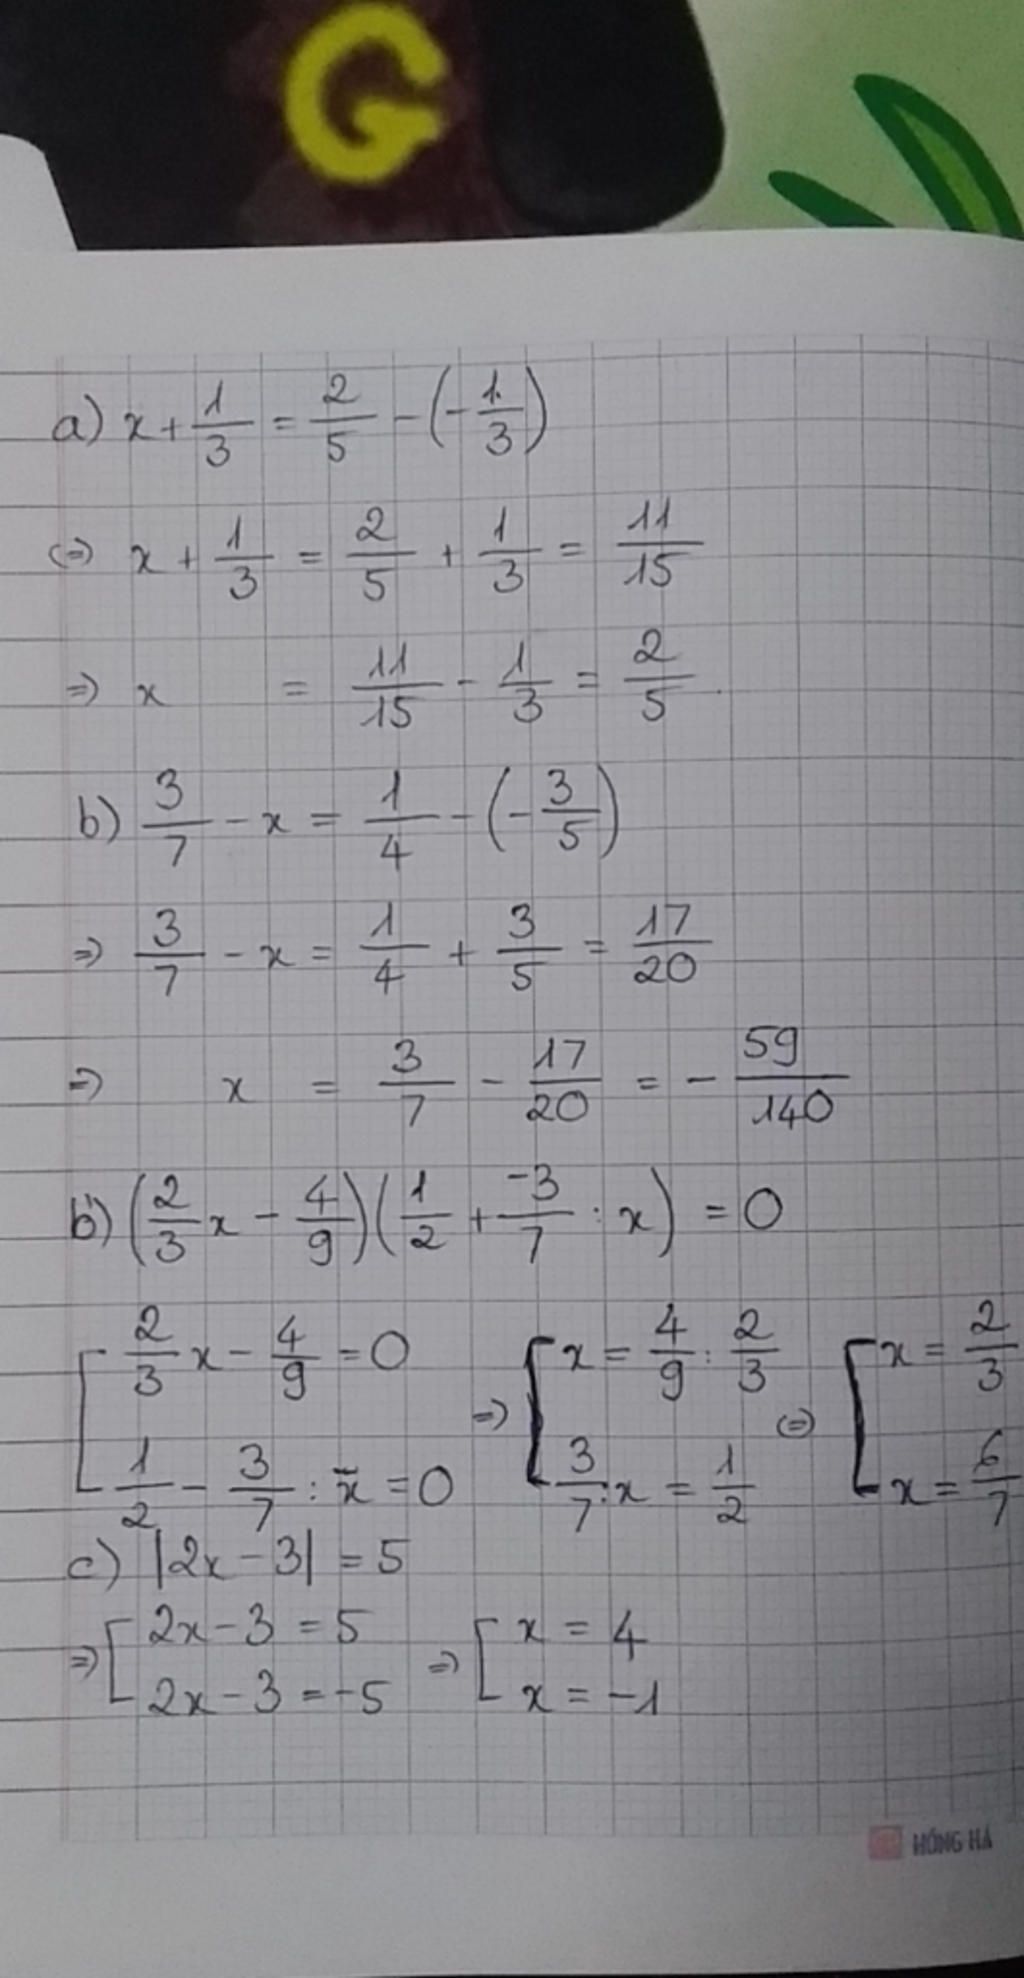 G
a) x + 1/3 = 2/5 - (-1/3)
(=) x + 1/3 = 2/5 + 1/3 = 11/15
=) x = 11/15 - 1/3 = 2/5.
b) 3/7 - x = 1/4 - (-3/5)
=) 3/7 - x = 1/4 + 3/5 = 17/20
=) x = 3/7 - 17/20 = - 59/140
b) (2/3 x - 4/9)(1/2 + -3/7 : x) = 0
[ 2/3 x - 4/9 = 0 =) [ x = 4/9 : 2/3 (=) [ x = 2/3
1/2 - 3/7 : x = 0 3/7 : x = 1/2 x = 6/7
c) |2x - 3| = 5
=) [ 2x - 3 = 5 =) [ x = 4
2x - 3 = -5 x = -1
HỒNG HÀ